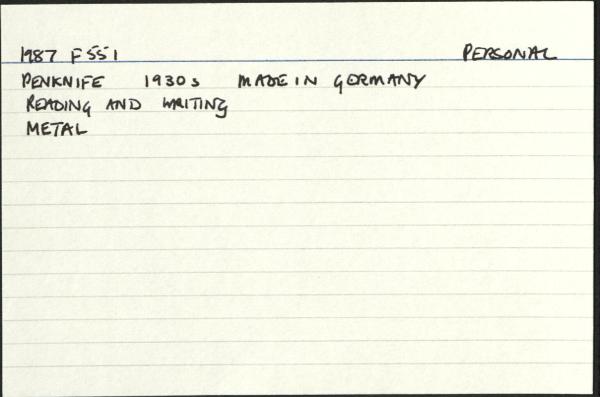 1987 F551 PERSONAL
PENKNIFE 1930s MADE IN GERMANY
READING AND WRITING
METAL